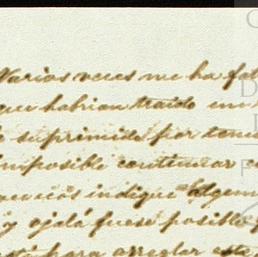 Varios veces me ha fal
que habrian traido en
suprimido por tene
imposible continuar
indique
y ojalá fuese posible
para arreglar este